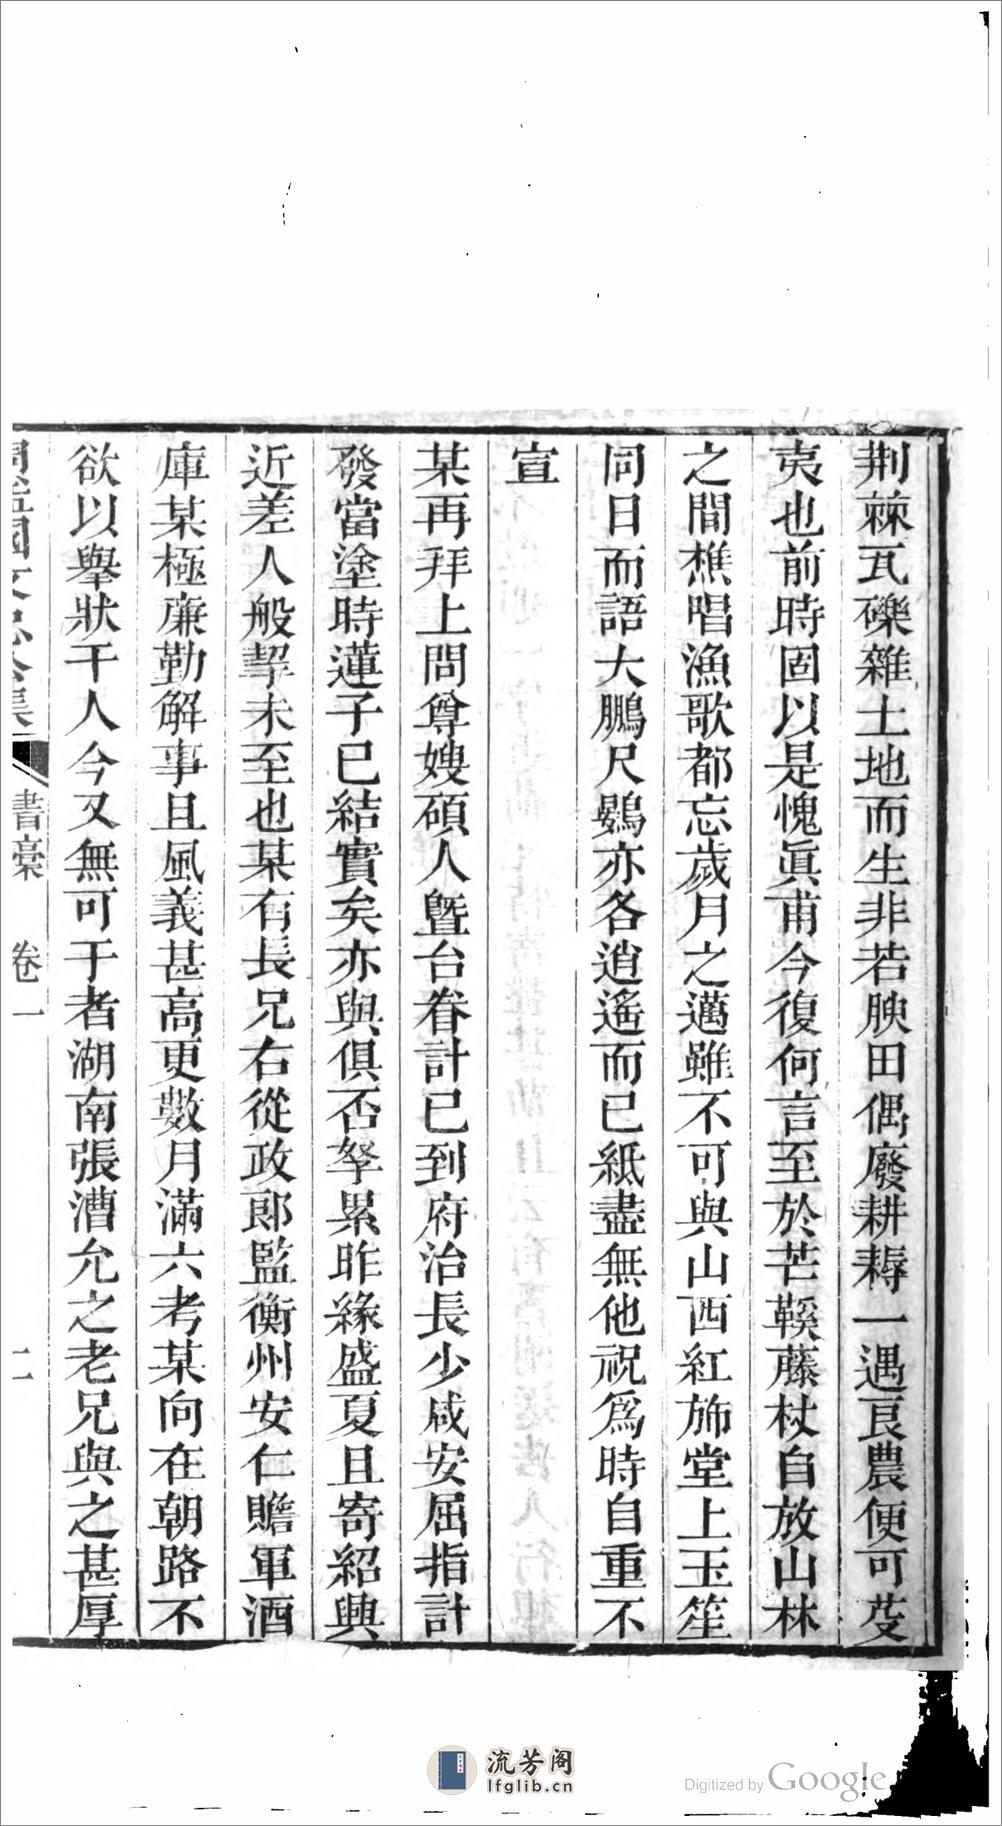 荆棘瓦礫雜土地而生非若腴田偶廢耕耨一遇良農便可芟
夷也前時固以是愧眞甫今復何言至於芒鞵藤杖自放山林
之間樵唱漁歌都忘歲月之邁雖不可與山西紅斾堂上玉笙
同日而語大鵬尺鷃亦各逍遙而已紙盡無他祝爲時自重不
宣
某再拜上問尊嫂碩人曁台眷計已到府治長少咸安屈指計
發當塗時蓮子已結實矣亦與俱否孥累昨緣盛夏且寄紹興
近差人般挈未至也某有長兄右從政郎監衡州安仁贍軍酒
庫某極廉勤解事且風義甚高更數月滿六考某向在朝路不
欲以舉狀干人今又無可干者湖南張漕允之老兄與之甚厚
周益國文忠公集 書稾 卷一 二
流芳阁
lfglib.cn
Digitized by Google